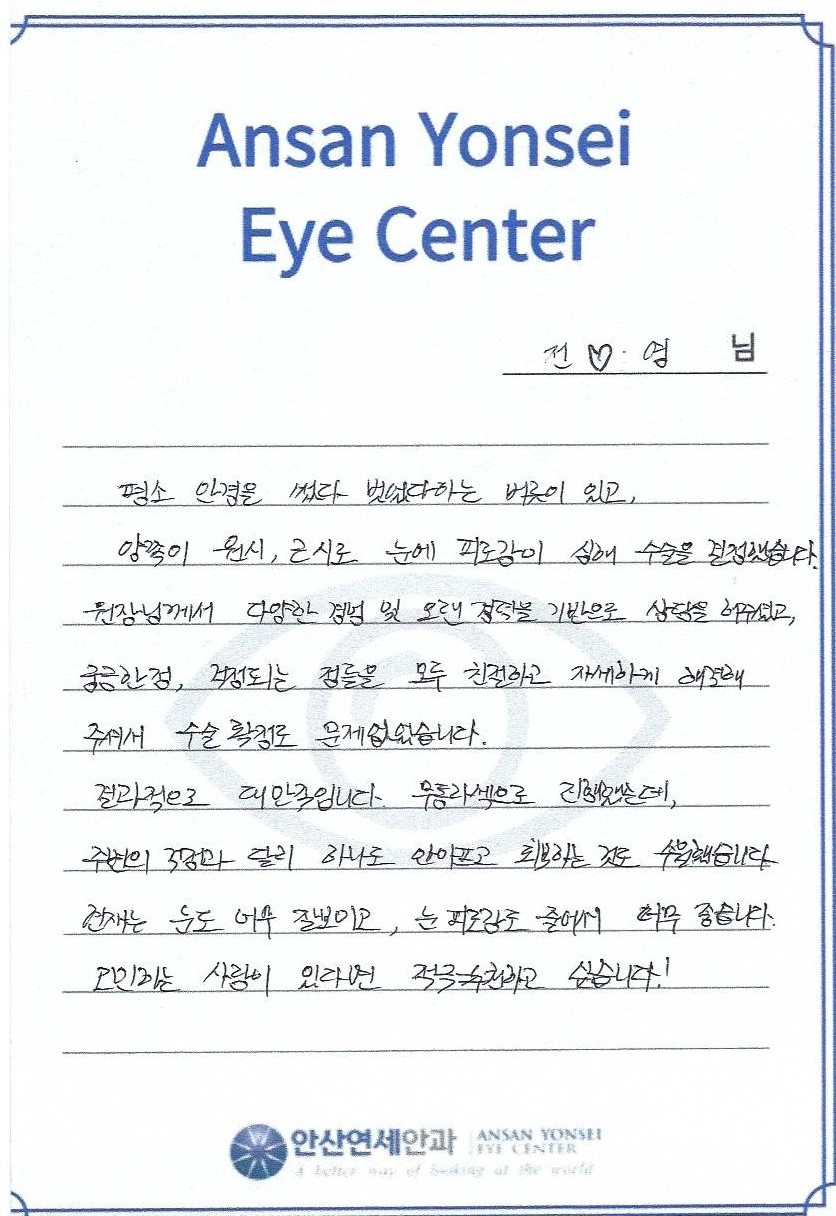 Ansan Yonsei
Eye Center
전♡영 님
평소 안경을 썼다 벗었다하는 버릇이 있고,
양쪽이 원시, 근시로 눈에 피로감이 심해 수술을 결정했습니다.
원장님께서 다양한 경험 및 오랜 경력을 기반으로 상담을 해주셨고,
궁금한점, 걱정되는 점들을 모두 친절하고 자세하게 해결해
주셔서 수술 확정도 문제없었습니다.
결과적으로 대만족입니다. 무통라섹으로 진행했는데,
주변의 걱정과 달리 하나도 안아프고 회복하는 것도 수월했습니다.
현재는 눈도 너무 잘보이고, 눈 피로감도 줄어서 너무 좋습니다.
고민하는 사람이 있다면 적극추천하고 싶습니다!
안산연세안과 ANSAN YONSEI
EYE CENTER
A better way of looking at the world